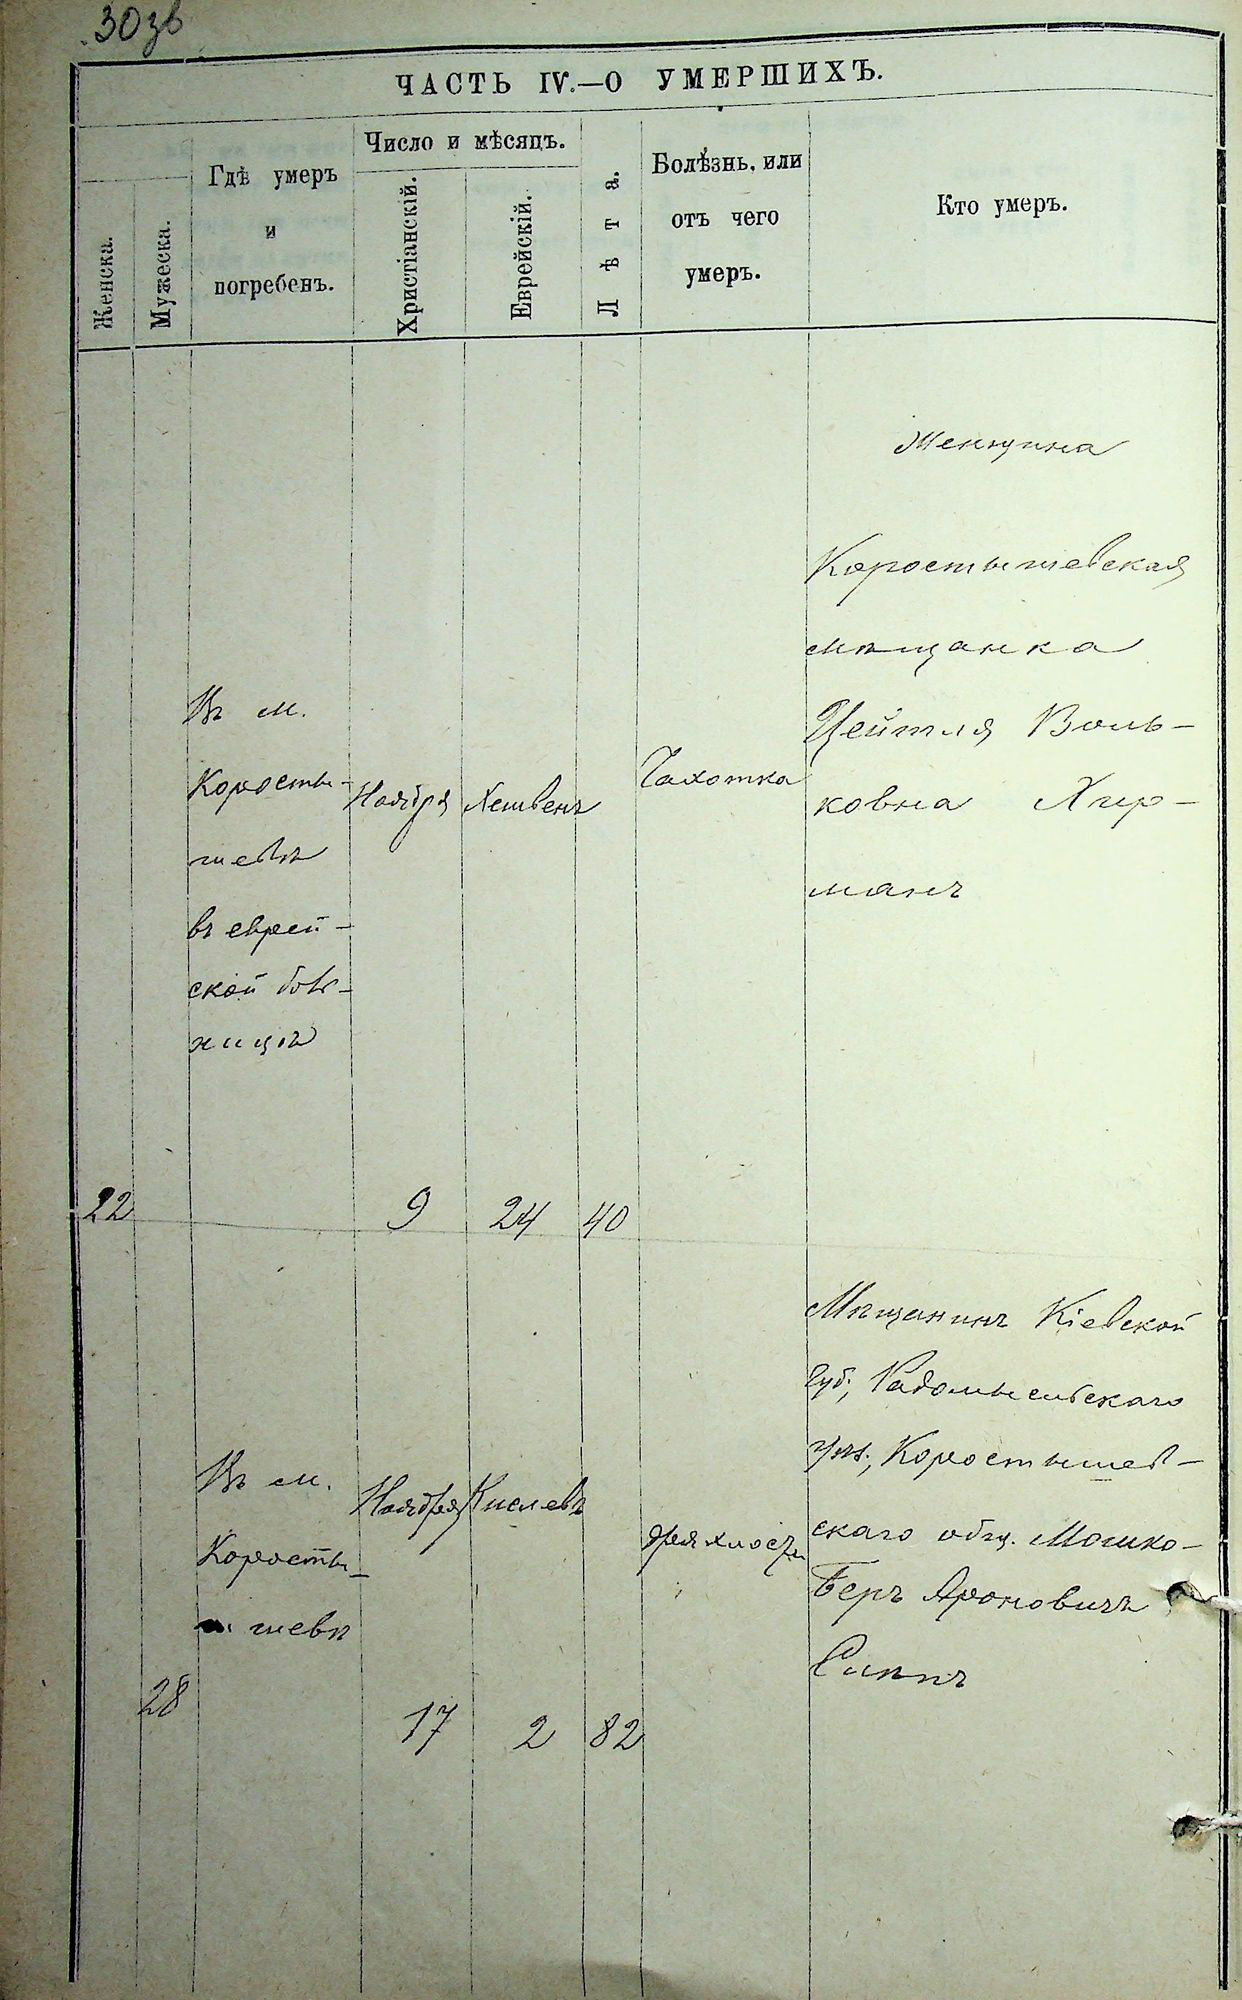 30зв
ЧАСТЬ IV.—О УМЕРШИХЪ.
Женска.
Мужеска.
Гдѣ умеръ
и
погребенъ.
Число и мѣсяцъ.
Христіанскій.
Еврейскій.
Лѣта.
Болѣзнь, или
отъ чего
умеръ.
Кто умеръ.
22
Въ м.
Коросты-
шевѣ
въ еврей-
ской боль-
ницѣ
Ноября
9
Хешвенъ
24
40
Чахотка
Женщина
Коростышевская
мѣщанка
Цейтля Воль-
ковна
манъ
28
Въ м.
Коросты-
шевѣ
Ноября
17
Кислевъ
2
82
дряхлость
Мѣщанинъ Кіевской
губ., Радомысльскаго
уѣз., Коростышев-
скаго общ. Мошко-
Беръ Ароновичъ